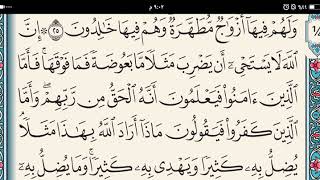 ٩:٠٢ م
٪٤١
وَلَهُمْ فِيهَا أَزْوَٰجٌ مُّطَهَّرَةٌ وَهُمْ فِيهَا خَٰلِدُونَ ٢٥ إِنَّ
ٱللَّهَ لَا يَسْتَحْىِۦٓ أَن يَضْرِبَ مَثَلًا مَّا بَعُوضَةً فَمَا فَوْقَهَا ۚ فَأَمَّا
ٱلَّذِينَ ءَامَنُوا۟ فَيَعْلَمُونَ أَنَّهُ ٱلْحَقُّ مِن رَّبِّهِمْ ۖ وَأَمَّا
ٱلَّذِينَ كَفَرُوا۟ فَيَقُولُونَ مَاذَآ أَرَادَ ٱللَّهُ بِهَٰذَا مَثَلًا ۘ
يُضِلُّ بِهِۦ كَثِيرًا وَيَهْدِى بِهِۦ كَثِيرًا ۚ وَمَا يُضِلُّ بِهِۦٓ